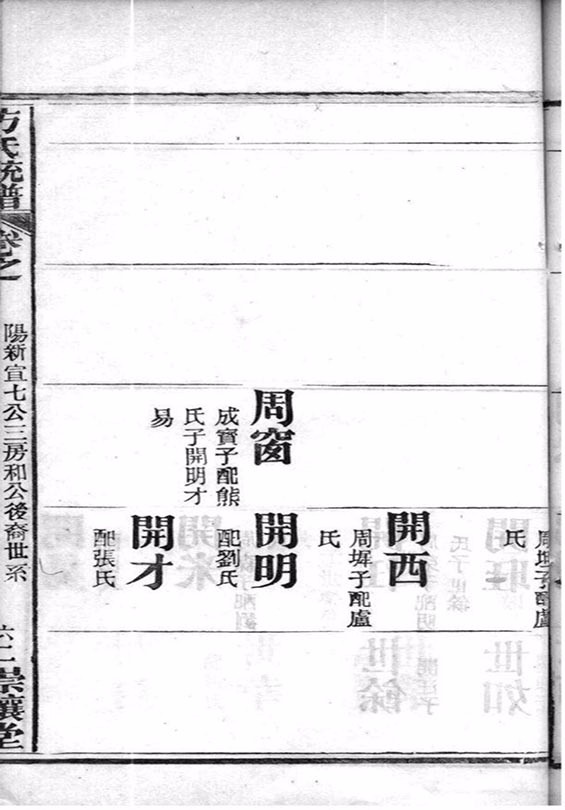 周坵子配盧
氏
開西
周塀子配盧
氏
周窗
成寳子配熊
氏子開明才
易
開明
配劉氏
開才
配張氏
方氏統譜
卷之一
陽新宣七公三房和公後裔世系
六一
崇讓堂